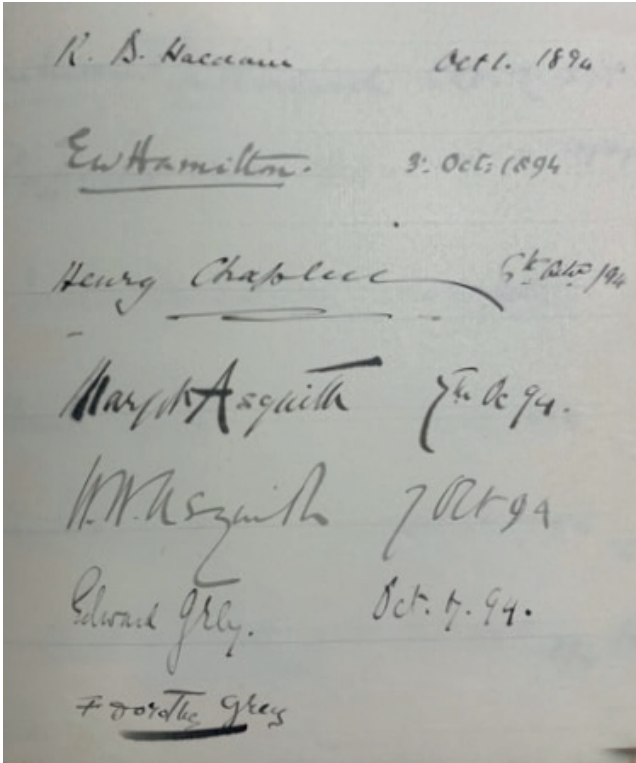 R. B. Haldane Oct 1. 1894
EW Hamilton. 3. Oct: 1894
Henry Chaplin 5th Octr /94
Margot Asquith 7th Oc 94.
H.H. Asquith 7 Oct 94
Edward Grey. Oct. 7. 94.
F Dorothy Grey